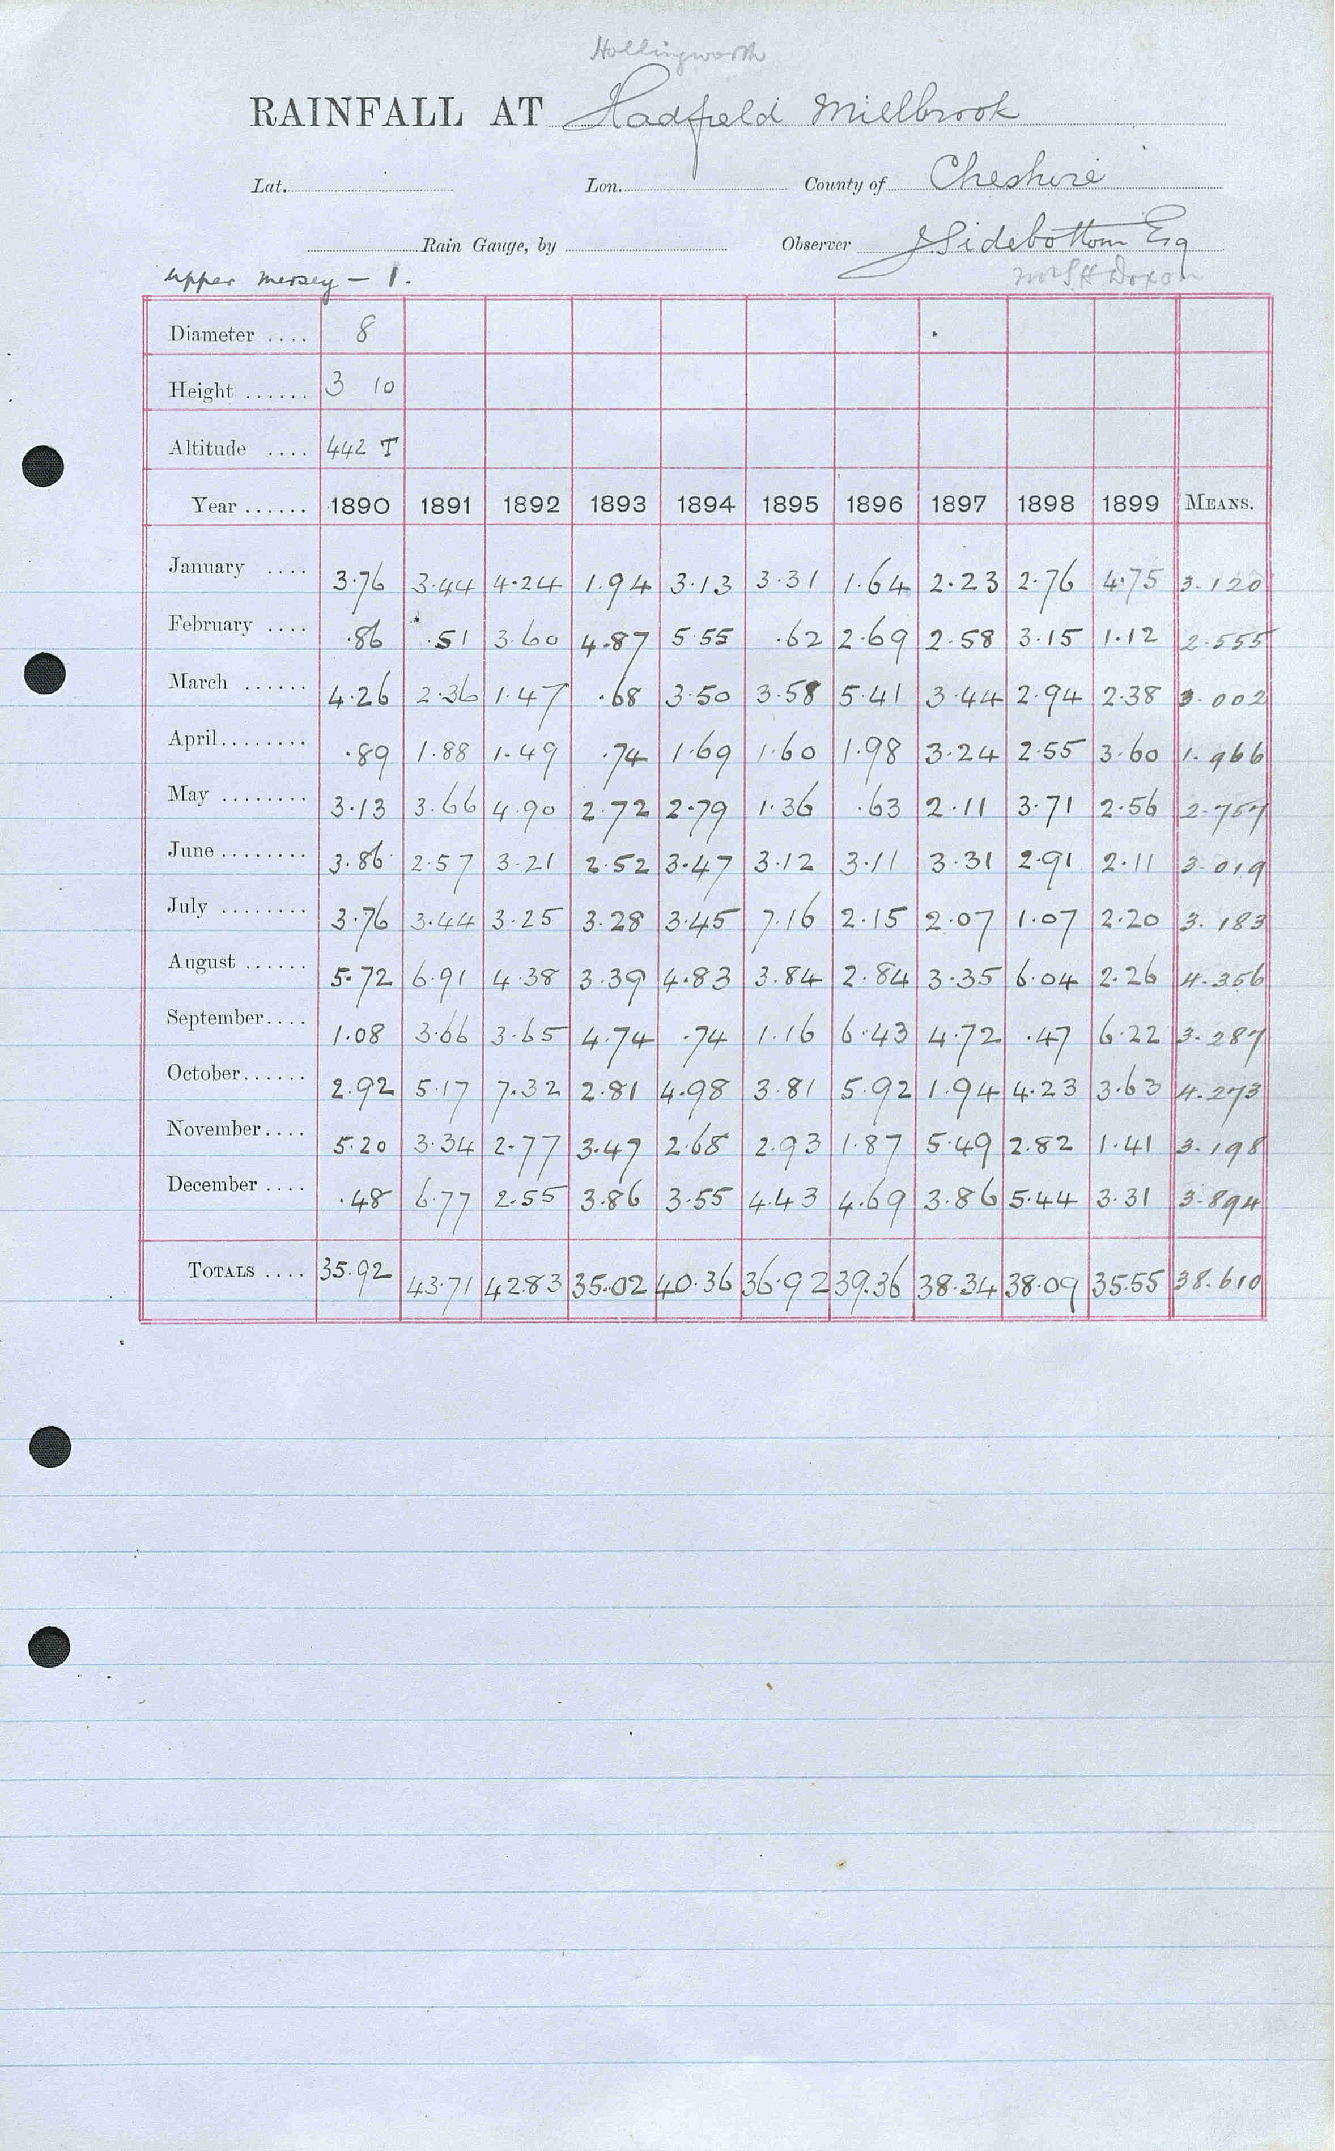 Hollingworth
RAINFALL AT Hadfield Millbrook
Lat. Lon. County of Cheshire
Rain Gauge, by Observer J Sidebottom Esq
Upper Mersey — 1. Doxon
Diameter .... 8
Height ...... 3 10
Altitude .... 442 T
Year ...... 1890 1891 1892 1893 1894 1895 1896 1897 1898 1899 MEANS.
January .... 3.76 3.44 4.24 1.94 3.13 3.31 1.64 2.23 2.76 4.75 3.120
February .... .86 .51 3.60 4.87 5.55 .62 2.69 2.58 3.15 1.12 2.555
March ...... 4.26 2.36 1.47 .68 3.50 3.58 5.41 3.44 2.94 2.38 3.002
April........ .89 1.88 1.49 .74 1.69 1.60 1.98 3.24 2.55 3.60 1.966
May ........ 3.13 3.66 4.90 2.72 2.79 1.36 .63 2.11 3.71 2.56 2.757
June ........ 3.86 2.57 3.21 2.52 3.47 3.12 3.11 3.31 2.91 2.11 3.019
July ........ 3.76 3.44 3.25 3.28 3.45 7.16 2.15 2.07 1.07 2.20 3.183
August ...... 5.72 6.91 4.38 3.39 4.83 3.84 2.84 3.35 6.04 2.26 4.356
September.... 1.08 3.66 3.65 4.74 .74 1.16 6.43 4.72 .47 6.22 3.287
October...... 2.92 5.17 7.32 2.81 4.98 3.81 5.92 1.94 4.23 3.63 4.273
November.... 5.20 3.34 2.77 3.47 2.68 2.93 1.87 5.49 2.82 1.41 3.198
December .... .48 6.77 2.55 3.86 3.55 4.43 4.69 3.86 5.44 3.31 3.894
TOTALS .... 35.92 43.71 42.83 35.02 40.36 36.92 39.36 38.34 38.09 35.55 38.610